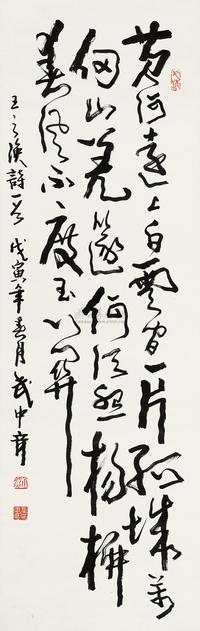 黄河远上白云间一片孤城万
仞山羌笛何须怨杨柳
春风不度玉门关
王之涣诗一首 戊寅年春月 武中奇